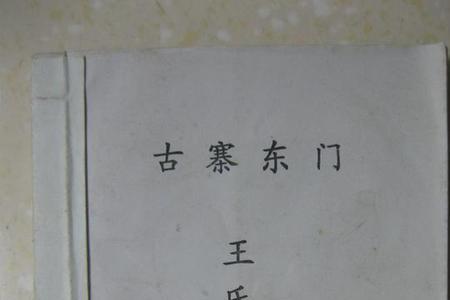 古寨东门
王
氏